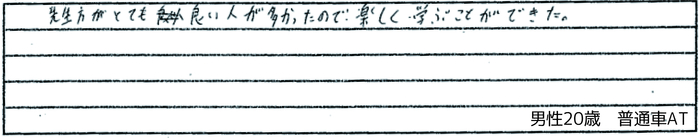 先生方がとても良い人が多かったので楽しく学ぶことができた。
男性20歳　普通車AT